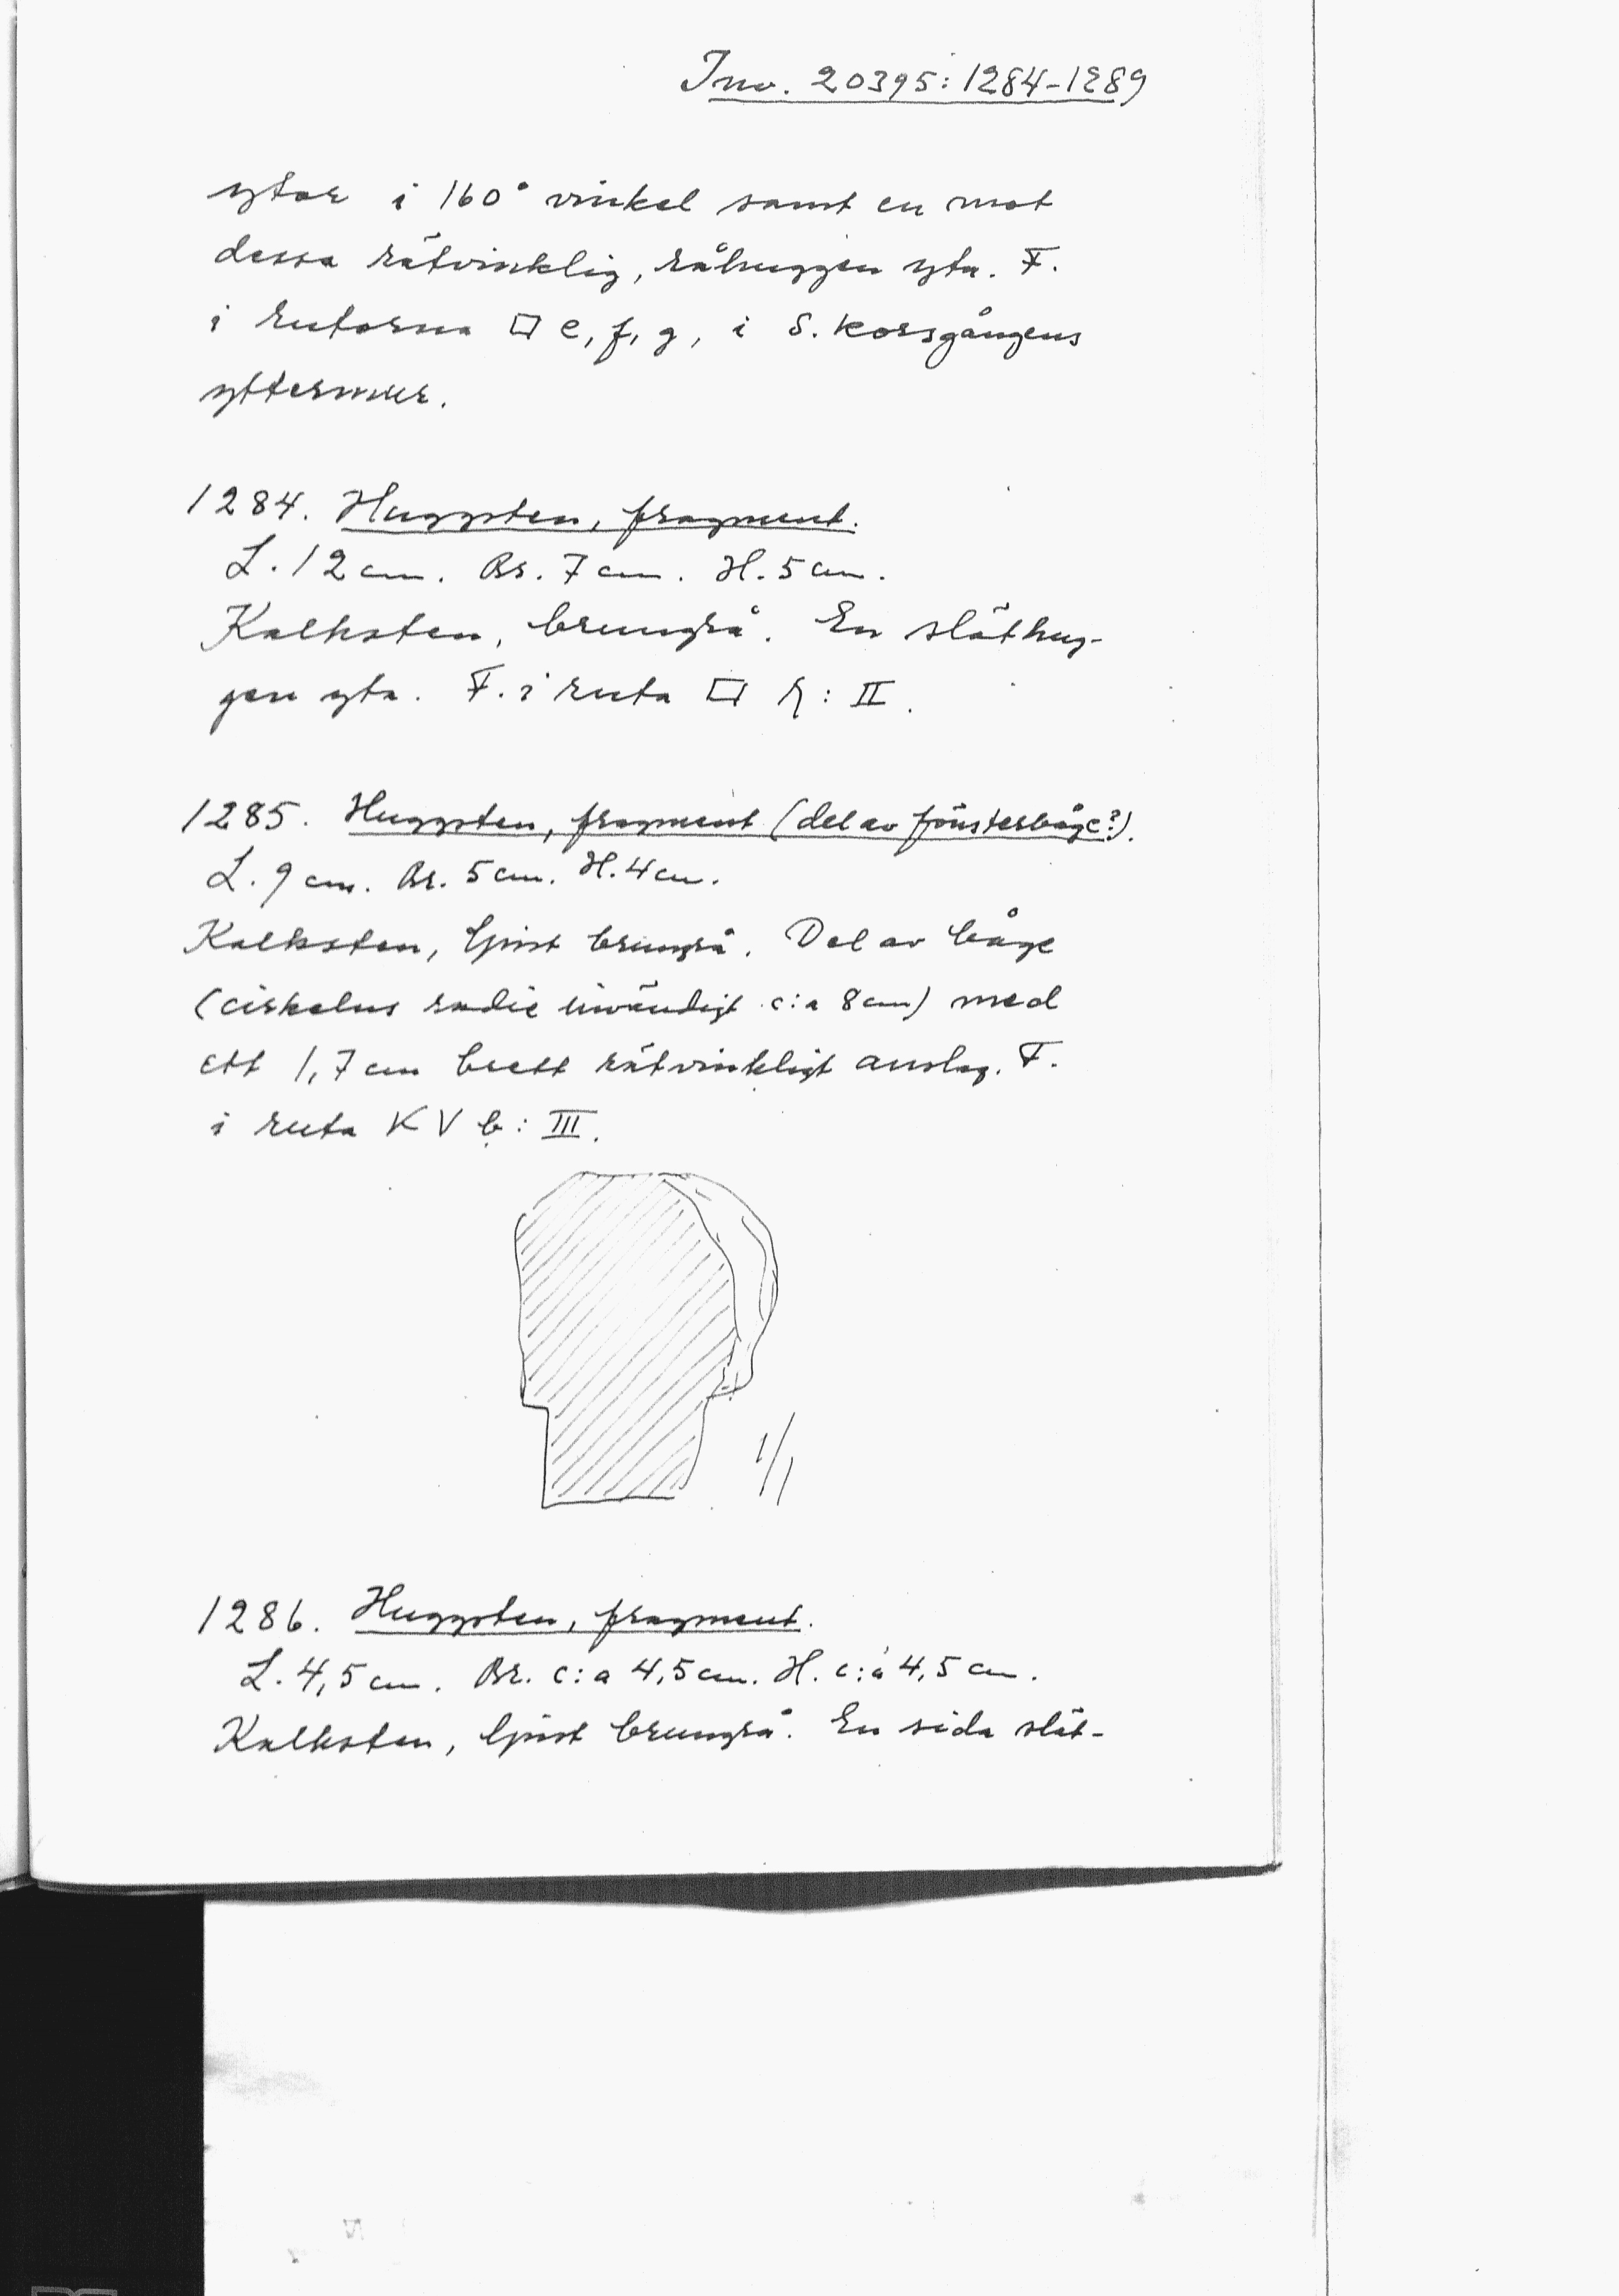 Inv. 20395: 1284-1289
ytor i 160° vinkel samt en mot
dessa rätvinklig, råhuggen yta. F.
i rutorna □ e, f, g, i S. korsgångens
yttermur.
1284. Huggsten, fragment.
L. 12 cm. Br. 7 cm. H. 5 cm.
Kalksten, brungrå. En släthug-
gen yta. F. i ruta □ : II.
1285. Huggsten, fragment (del av fönsterbåge?).
L. 9 cm. Br. 5 cm. H. 4 cm.
Kalksten, ljust brungrå. Del av båge
(cirkelns radie invändigt c:a 8 cm) med
ett 1,7 cm brett rätvinkligt anslag. F.
i ruta KV b: III.
1/1
1286. Huggsten, fragment.
L. 4,5 cm. Br. c:a 4,5 cm. H. c:a 4,5 cm.
Kalksten, ljust brungrå. En sida slät-